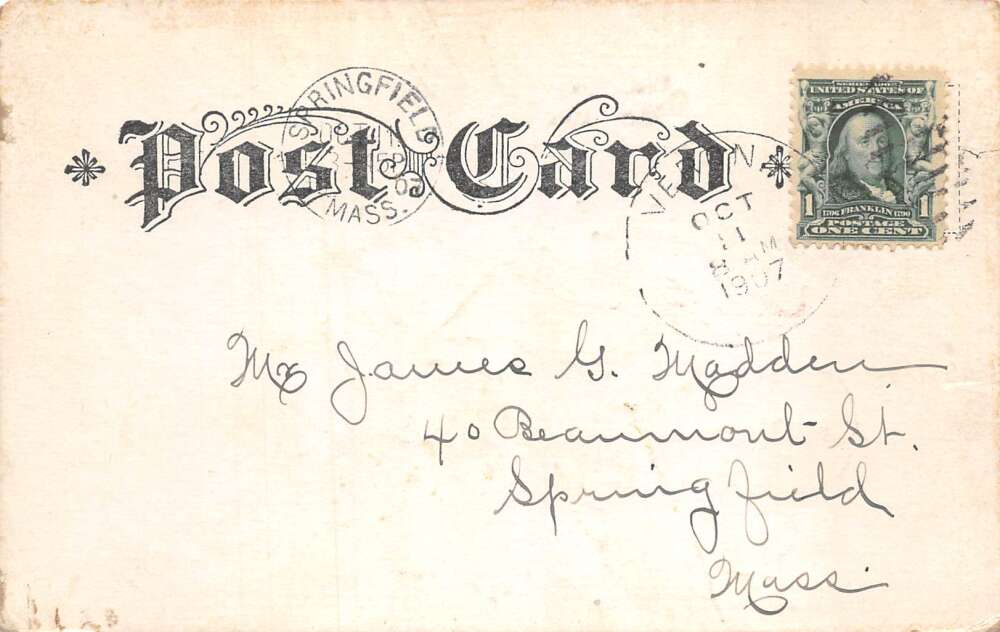 SPRINGFIELD
MASS.
Post Card
OCT
11
8 AM
1907
SERIES 1902
UNITED STATES OF
AMERICA
1 1706 FRANKLIN 1790 1
POSTAGE
ONE CENT
Mr James G. Madden
40 Beaumont St.
Springfield
Mass.